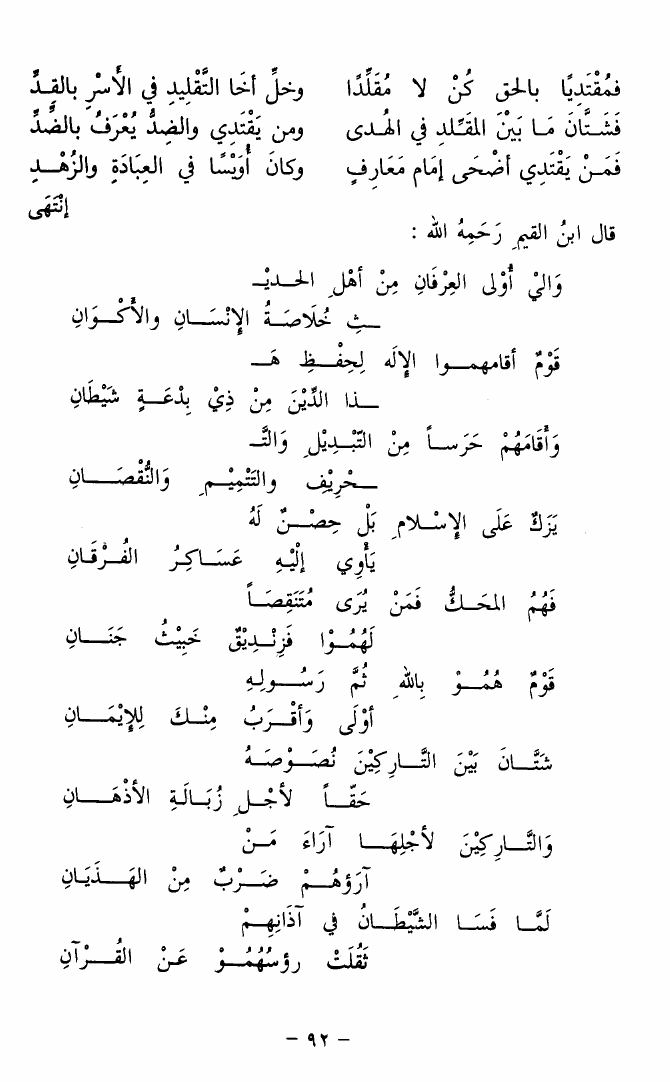 فمُقْتَدِيًا بالحق كُنْ لا مُقَلِّدًا وخلِّ أخَا التَّقْلِيدِ في الأَسْرِ بالقِدِّ
فَشَتَّانَ مَا بَيْنَ المقَلِّدِ في الهُدى ومن يَقْتَدِي والضِدُّ يُعْرَفُ بالضِّدِّ
فَمَنْ يَقْتَدِي أضْحَى إمَامِ مَعَارِفٍ وكانَ أُوَيْسًا في العِبَادَةِ والزُهْدِ
إنْتَهَى
قال ابنُ القيمِ رَحِمَهُ الله :
وَاليْ أُوْلى العِرْفَانِ مِنْ أهْلِ الحديْـ
ـثِ خُلَاصَةُ الإِنْسَانِ والأَكْوَانِ
قَوْمٌ أقامهموا الإِلَه لِحِفْظِ هَـ
ـذا الدِّيْنَ مِنْ ذِيْ بِدْعَةٍ شَيْطَانِ
وَأَقَامَهُمْ حَرَساً مِنَ التَّبْدِيْلِ وَالتَّـ
ـحْرِيْفِ والتَتْمِيْمِ وَالنُّقْصَانِ
يَزَكٌ عَلَى الإِسْلامِ بَلْ حِصْنٌ لَهُ
يَأْوِي إلَيْهِ عَسَاكِرُ الفُرْقَانِ
فَهُمُ المَحَكُّ فَمَنْ يُرَى مُتَنَقِصَاً
لَهُمُوْا فَزِنْدِيْقٌ خَبِيْثُ جَنَانِ
قَوْمٌ هُمُوْ بِاللهِ ثُمَّ رَسُولِهِ
أوْلَى وَأقْرَبُ مِنْكَ لِلإِيْمَانِ
شَتَّانَ بَيْنَ التَّارِكِيْنَ نُصَوْصَهُ
حَقّاً لأجْلِ زُبَالَةِ الأذْهَانِ
وَالتَّارِكِيْنَ لأجْلِهَا آرَاءَ مَنْ
آرَؤُهُمْ ضَرْبٌ مِنْ الهَذَيَانِ
لَمَّا فَسَا الشَّيْطَانُ في آذَانِهِمْ
ثَقُلَتْ رؤسُهُمُوْ عَنْ القُرْآنِ
- ٩٢ -